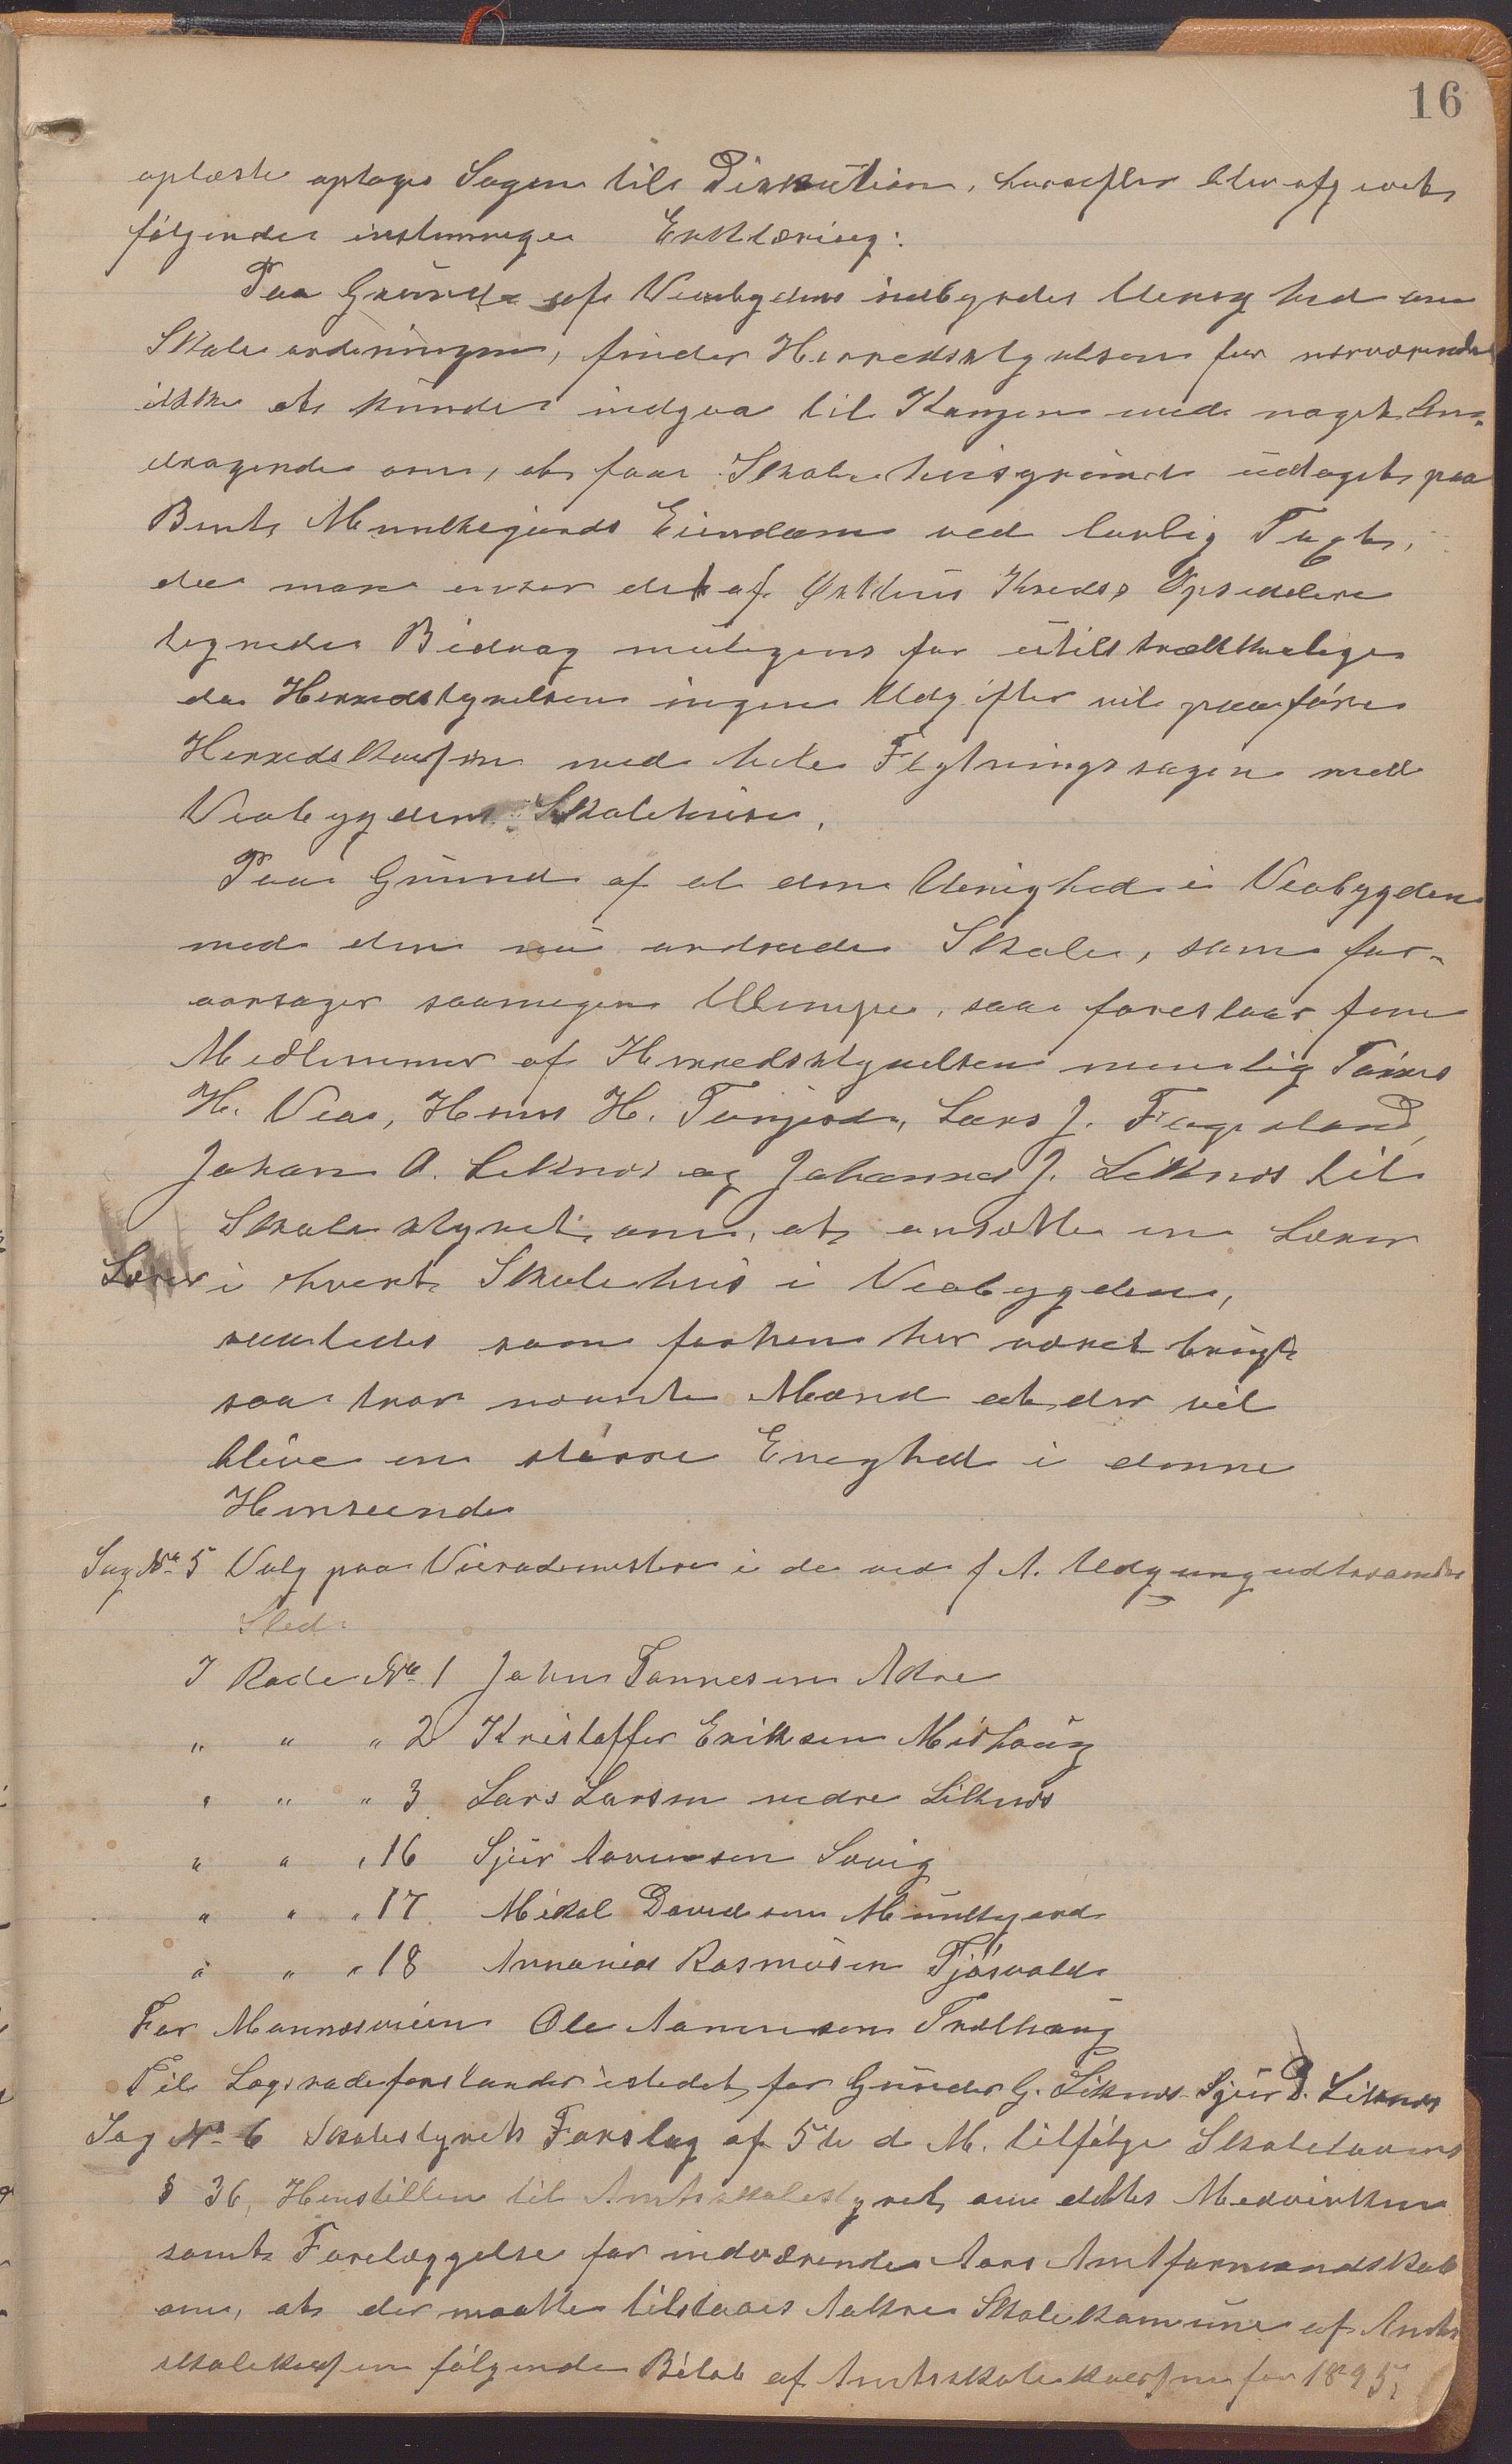 16
oplæste optoges Sagen till Diskution, hvorefter blev afgivet
følgende enstemmige Erklæring:
Paa Grund af Veabygdens indbyrdes Uenighed om
Skoleordningen, finder Herredsstyrelsen for nærværende
ikke at kunde indgaa til Kongen med noget An-
dragende om, at faa Skolehusgrund udtaget paa
Bent Munkejords Eiendom ved lovlig Tagt,
da man anser det af Østhus Kreds's Opsidelere
tegnede Bidrag muligens for utilstrækkelige
da Herredstyrelsen ingen Udgifter vil paaføre
Herredskassen med hele Flytningssagen med
Veabygdens Skolehuse.
Paa Grund af al den Uenighed i Veabygden
med den nu andrede Skole, som for-
aarsager saamegen Ulempe, saa foreslaar fem
Medlemmer af Herredsstyrelsen nemlig Tørres
H. Vea, Hans H. Tangjerd, Lars J. Fageland,
Johan A. Liknes og Johannes J. Liknes til
Skolestyret om, at ansætte en Lærer
Lærer i hvert Skolehus i Veabygden,
saaledes som forhen har været brugt
saa tror nævnte Mænd at der vil
blive en større Enighed i denne
Henseende
Sag No 5 Valg paa Veirodemestere i de ved f A. Udgang udtrædendes
Sted.
I Rode No 1 Johan Tønnesen Aakre
" " " 2 Kristoffer Eriksen Midhaug
" " " 3 Lars Larsen nedre Liknes
" " " 16 Sjur Aamunsen Sævig
" " " 17 Mikal Davidsen Munkejord
" " " 18 Annanias Rasmusen Tjøsvold
For Mannesveien Ole Aamunsen Trælhaug
Til Lagrodeforstander istedet for Gunder G. Liknes Sjur D. Liknes
Sag No 6 Skolestyrets Forslag af 5te d M. tilfølge Skolelovens
§ 36, Henstillen til Amtsskolestyret om dettes Medvirken
samt Forelæggelse for indværende Aars Amtformandskab
om, at der maatte tilstaaes Aakre Skolekommune af Amts
skolekassen følgende Beløb af Amtsskolekassen for 1895,